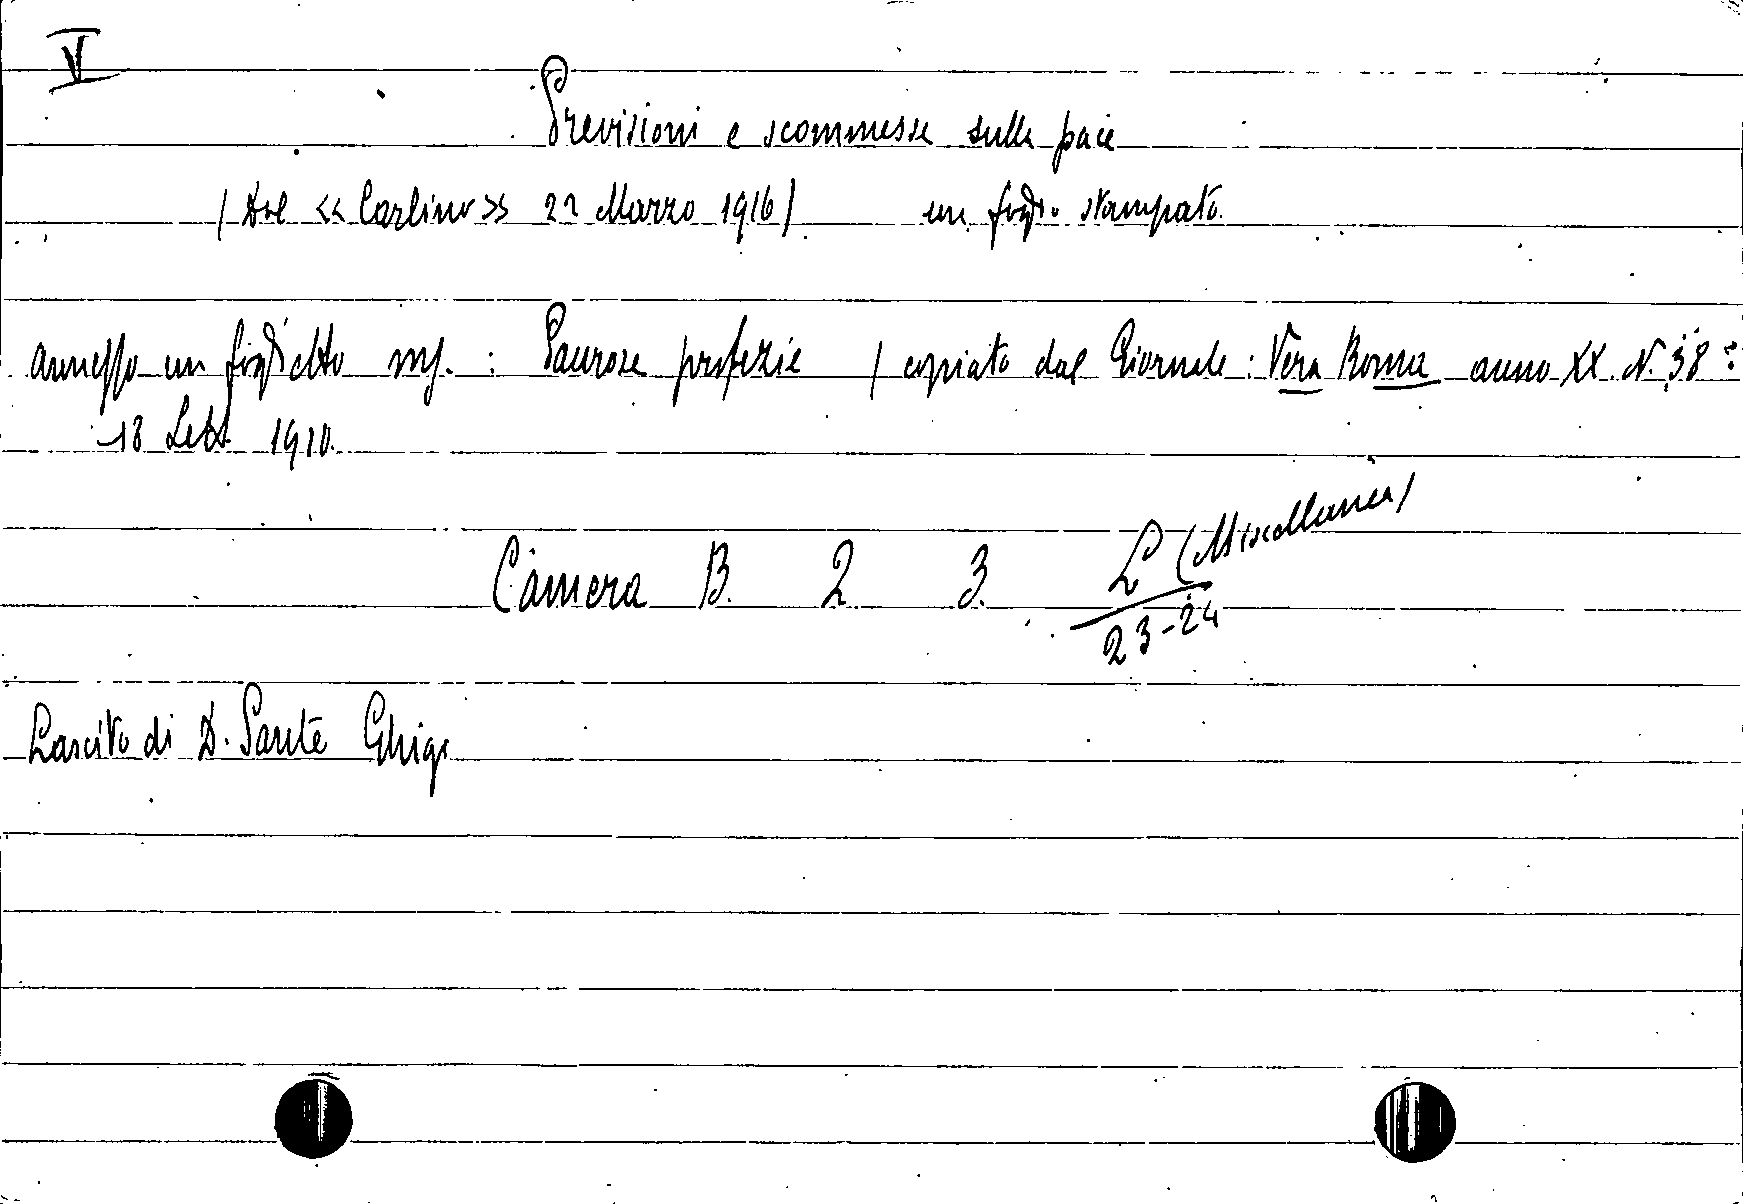 V
Previsioni e scommesse sulla pace
(Dal << Carlino >> 22 Marzo 1916) un foglio stampato.
annesso un foglietto ms. : Paurose profezie (copiato dal Giornale : Vera Roma anno XX. N. 38 :
18 Sett. 1910.
Camera B. 2 3. L (Miscellanea)
23-24
Lascito di D. Sante Ghigi